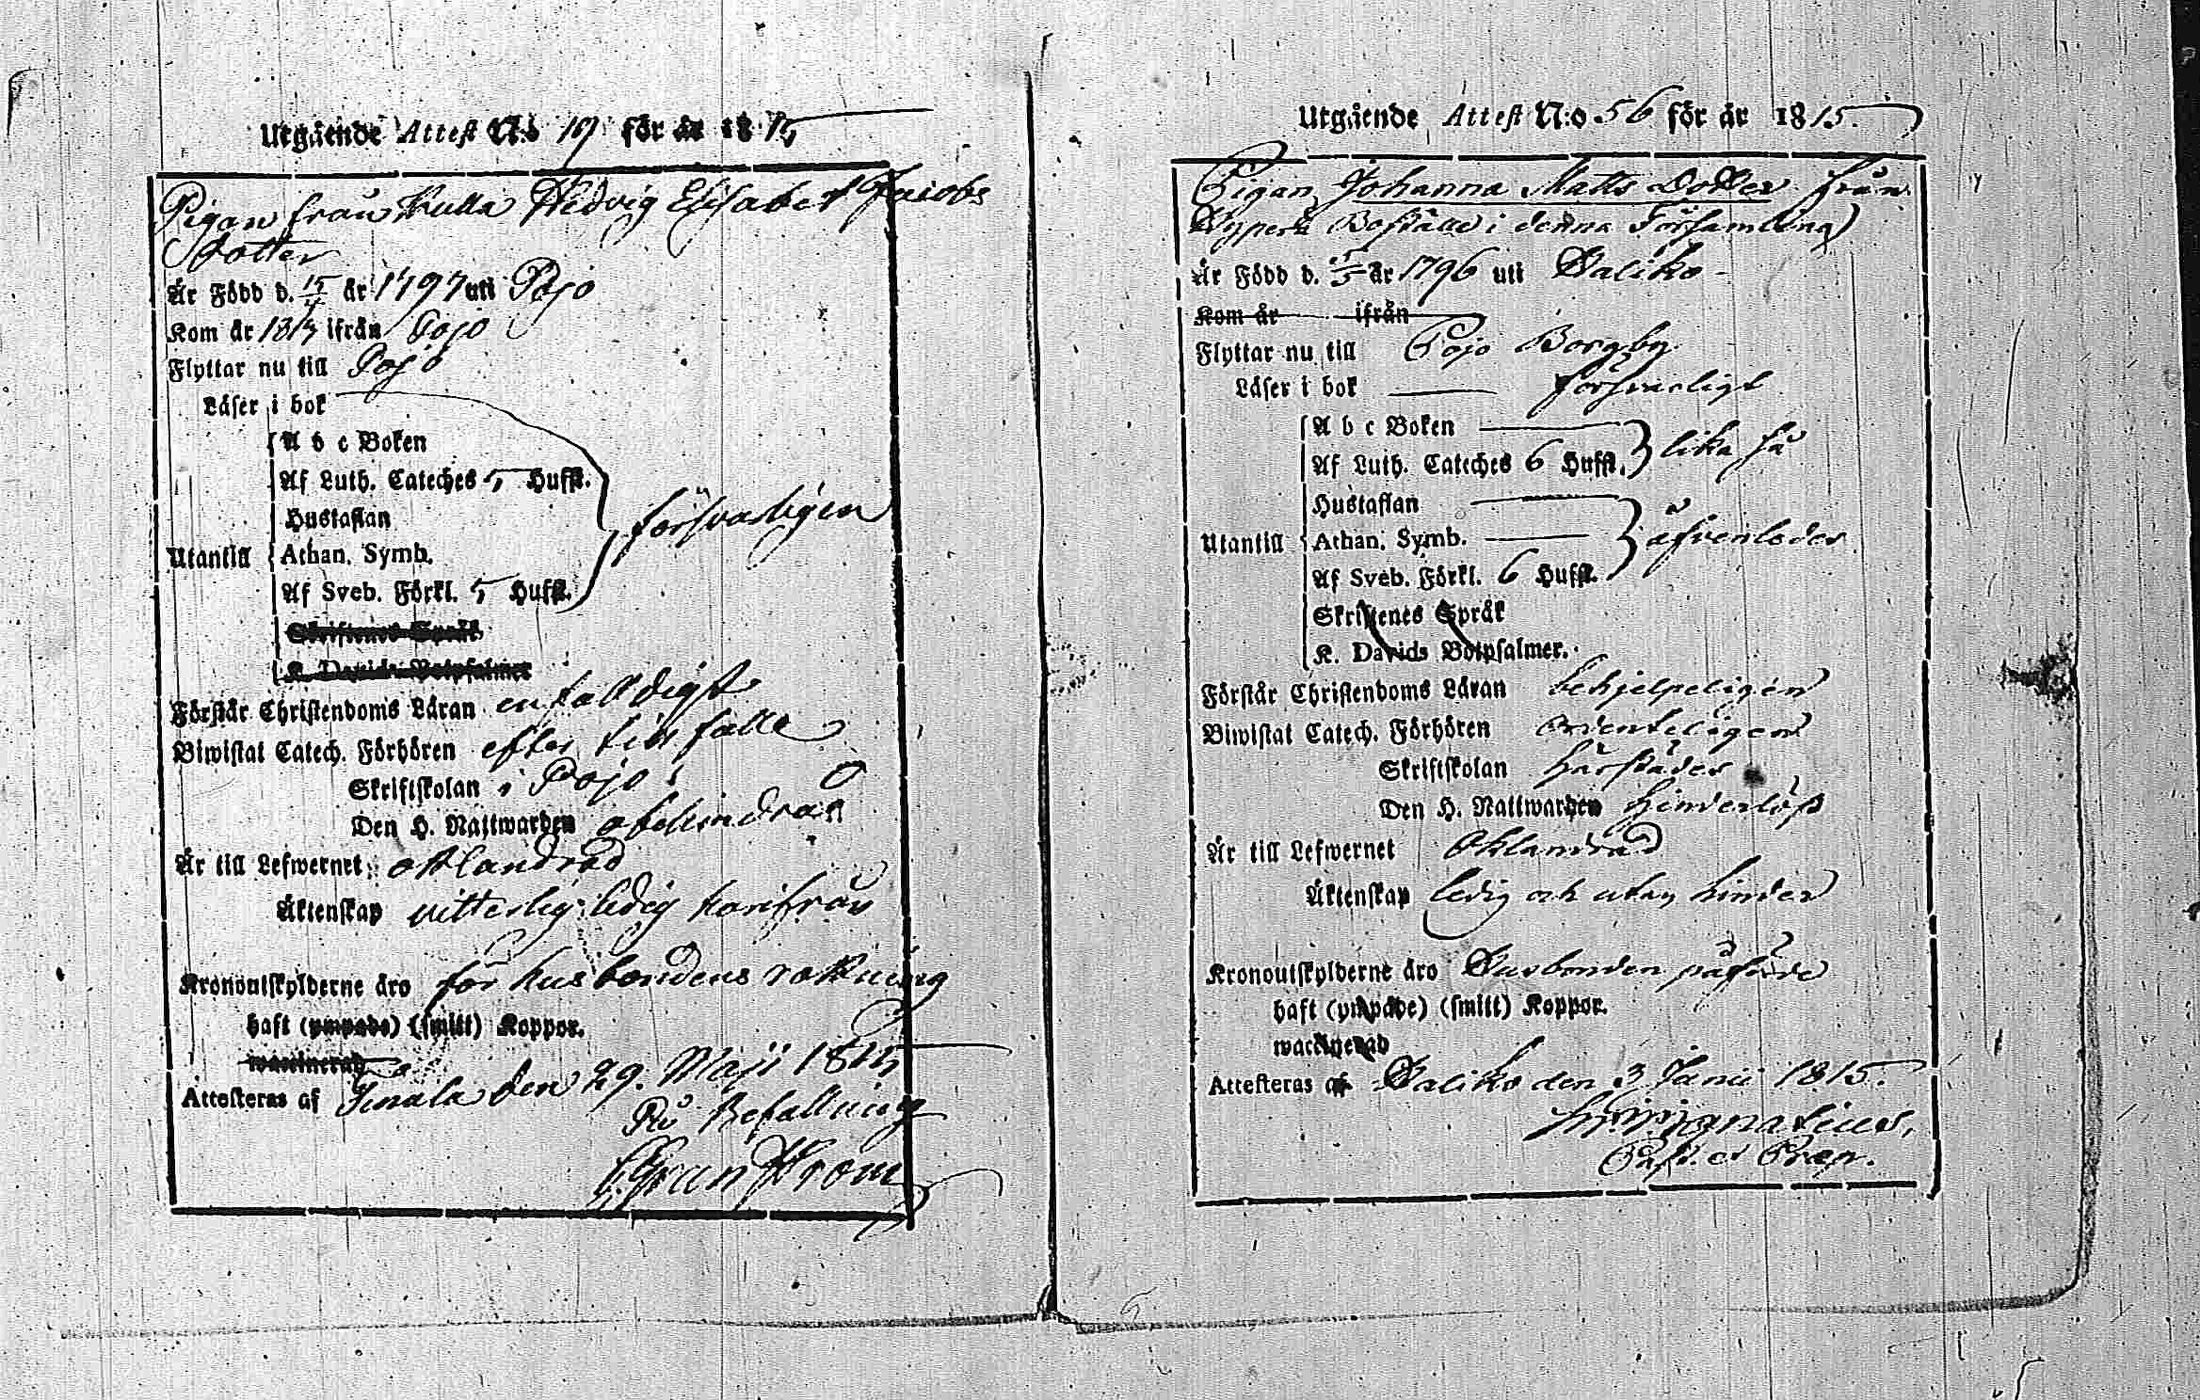 Utgående Attest N:o 19 för år 1815
Pigan från Kulla Hedvig Elisabet Jacobs
Dotter
Är Född d. 15/4 år 1797 uti Pojo
Kom år 1814 ifrån Pojo
Flyttar nu till Pojo
Läser i bok
A b c Boken
Af Luth. Cateches 5 Hufst.
Hustaflan
Utantill Athan. Symb. försvarligen
Af Sveb. Förkl. 5 Hufst.
Skriftenes Språk
K. Davids Botpsalmer
Förstår Christendoms Läran enfaldigt
Biwistat Catech. Förhören efter tilfälle
Skriftskolan i Pojo
Den H. Nattwarden obehindrad
Är till Lefwernet oklandrad
Äktenskap vitterlig ledig härifrån
Kronoutskylderne äro för husbondens räkning
haft (ympade) (smitt) Koppor.
waccinerad
Attesteras af Tenala den 29. Maji 1815
På Befallning
Granström
Utgående Attest N:o 56 för år 1815.
Pigan Johanna Matts Dotter från
Boställe i denna Församling
Är Född d. år 1796 uti Saliko
Kom år ifrån
Flyttar nu till Pojo Borgby
Läser i bok försvarligt
A b c Boken
Af Luth. Cateches 6 Hufst. lika så
Hustaflan
Utantill Athan. Symb. äfvenledes
Af Sveb. Förkl. 6 Hufst.
Skriftenes Språk
K. Davids Botpsalmer.
Förstår Christendoms Läran behjelpeligen
Biwistat Catech. Förhören ordenteligen
Skriftskolan härstädes
Den H. Nattwarden hinderlöst
Är till Lefwernet Oklandrad
Äktenskap ledig och utan hinder
Kronoutskylderne äro Husbonden påförde
haft (ympade) (smitt) Koppor.
waccinerad
Attesteras af Saliko den 3 Junii 1815.
Past. et Praep.